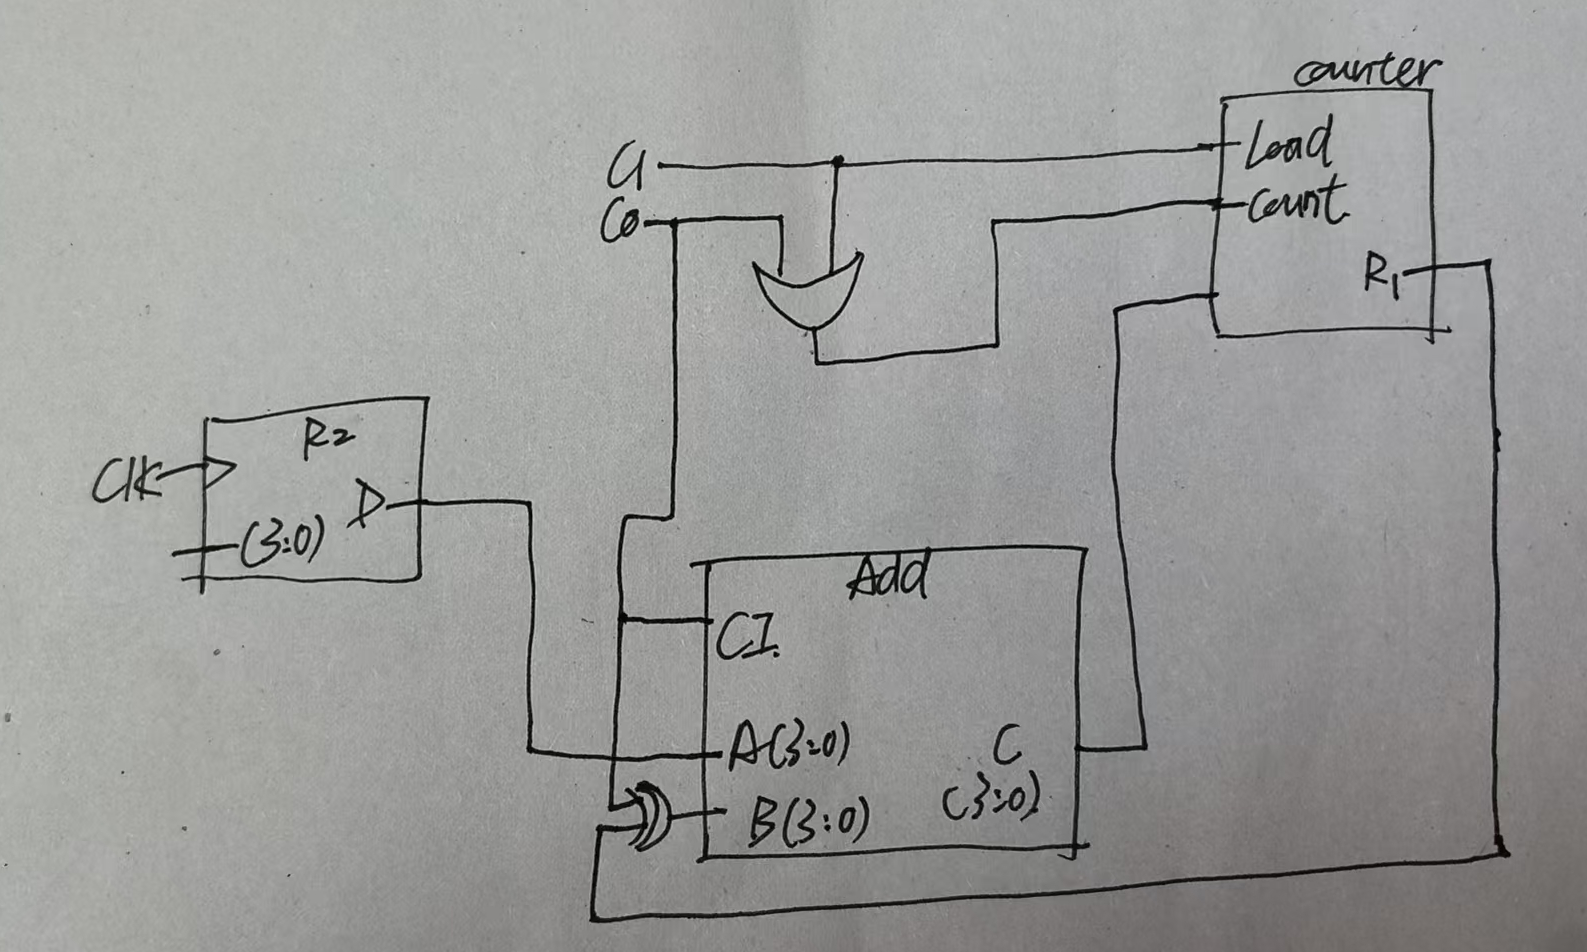 counter
C1
Load
C0
Count
R1
R2
Clk
D
(3:0)
Add
CI.
A(3:0)
C
(3:0)
B(3:0)